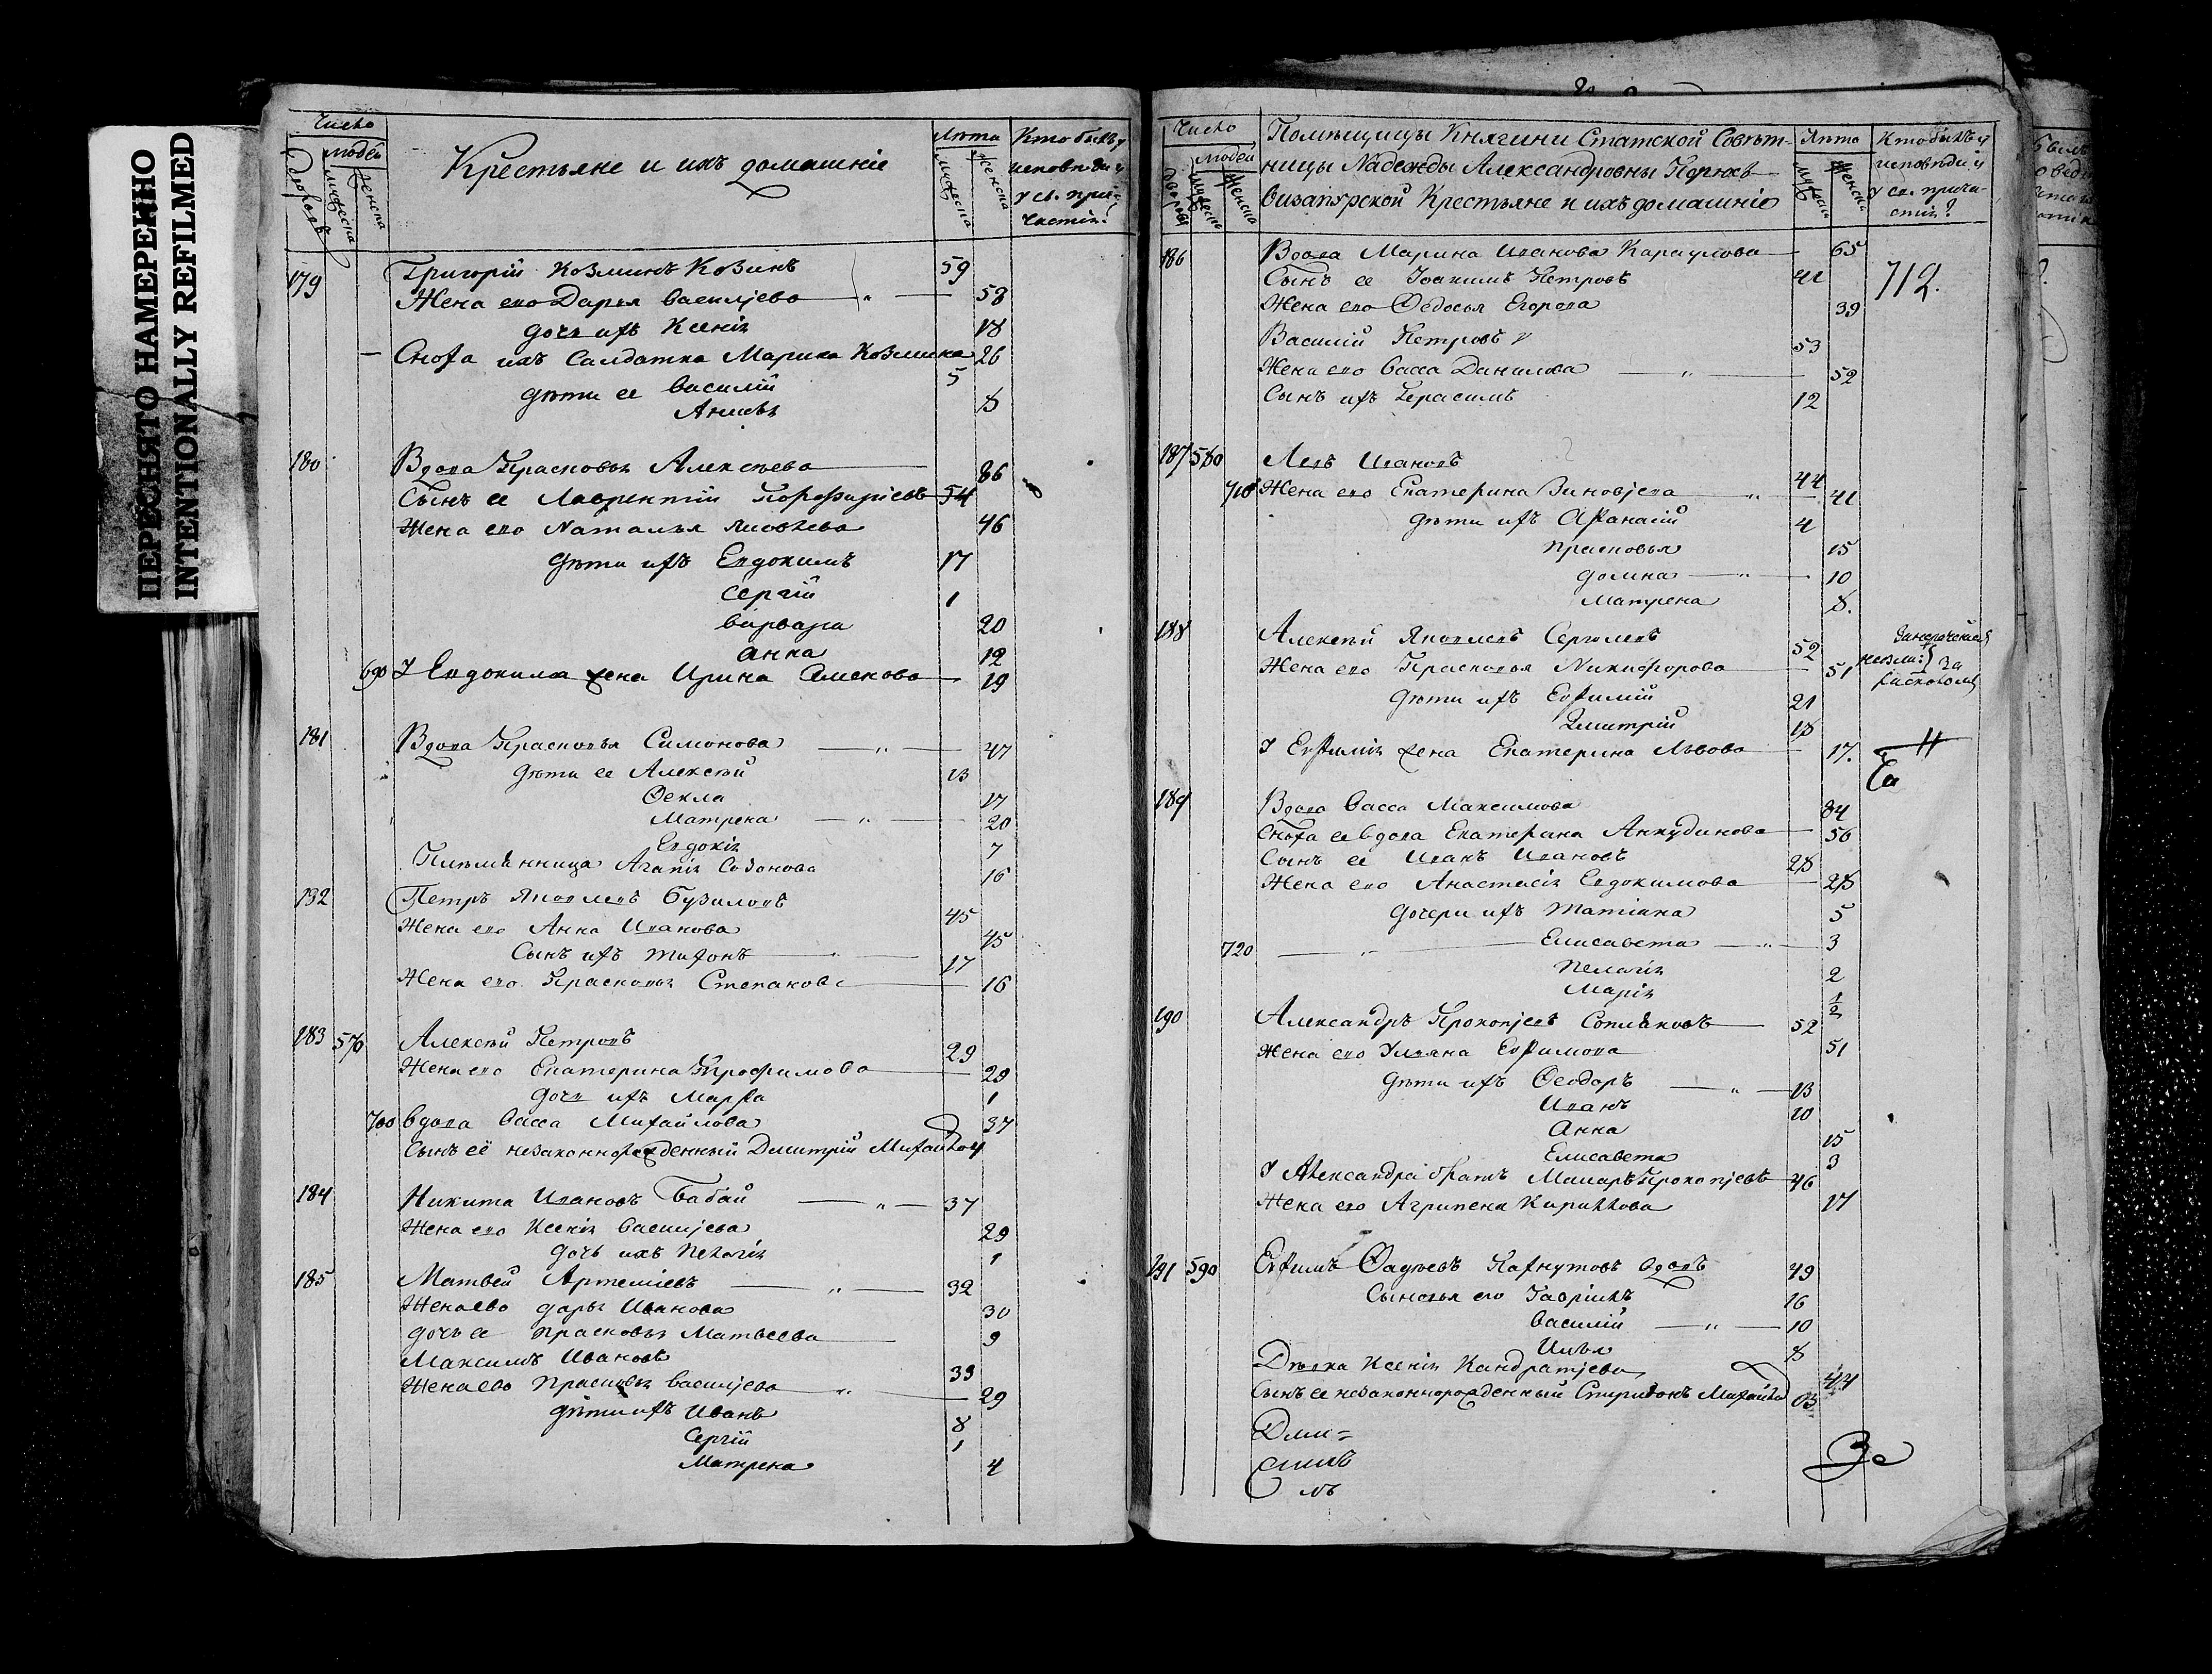 ПЕРЕСНЯТО НАМЕРЕННО
INTENTIONALLY REFILMED
Число
людей
Крестьяне и ихъ домашніе
лѣта
Кто былъ у
исповѣди и
у св. при-
частія?
179 Григорій Козминъ Козинъ 59
Жена его Дарья Василјева 58
дочь ихъ Ксенія 18
Сноха ихъ Салдатка Марина Козмина 26
дѣти ее Василій 5
Анисья 8
180 Вдова Прасковья Алексѣева 86
Сынъ ее Лаврентій Порфиріевъ 54
Жена его Наталья Яковлева 46
дѣти ихъ Евдокимъ 17
Сергій 1
Варвара 20
Анна 12
690 У Евдокима жена Ирина Семенова 19
181 Вдова Прасковья Симонова 47
дѣти ее Алексѣй 13
Ѳекла 17
Матрена 20
Евдокія 7
Племѣнница Агапія Созонова 16
182 Петръ Яковлевъ Бузиловъ 45
Жена его Анна Иванова 45
Сынъ ихъ Тихонъ 17
Жена его Прасковья Степанова 16
183 576 Алексѣй Петровъ 29
Жена его Екатерина Трофимова 29
дочь ихъ Марфа 1
700 Вдова Васса Михайлова 37
Сынъ её незаконнорожденный Дмитрій Михайлов 4
184 Никита Ивановъ Бабай 37
Жена его Ксенія Василјева 29
дочь ихъ Пелагія 1
185 Матвей Артеміевъ 32
Жена ево дарья Иванова 30
дочь ее Прасковья Матвеева 9
Максимъ Ивановъ 33
Жена ево Прасковья Василјева 29
дѣти ихъ Иванъ 8
Сергій 1
Матрена 4
Число
людей
Помѣщицы Княгини Статской Совѣт-
ницы Надежды Александровны
Визапурской Крестьяне и ихъ домашніе
Лѣта
Кто былъ у
исповѣди и
у св. прича-
стія?
186 Вдова Марина Иванова Караулова 65
Сынъ ее Іоакимъ Петровъ 41
712.
Жена его Ѳедосья Егорова 39
Василій Петровъ 53
Жена его Васса Данилова 52
Сынъ ихъ Герасимъ 12
187 580 Левъ Ивановъ 44
710 Жена его Екатерина Зиновјева 41
дѣти ихъ Афанасій 4
Прасковья 15
домна 10
Матрена 8.
188 Алексѣй Яковлевъ Сергѣевъ 52
Жена его Прасковья Никифорова 51
за
дѣти ихъ Евфимій 21
Дмитрій 18
У Евфимія жена Екатерина Львова 17.
189 Вдова Васса Максимова 84
Сноха ее вдова Екатерина Анкудинова 56
Сынъ ее Иванъ Ивановъ 28
Жена его Анастасія Евдокимова 28
дочери ихъ Татіана 5
720 Елисавета 3
Пелагія 2
Марія 1/2
190 Александръ Прокопјевъ Сотѣковъ 52
Жена его Уляна Евфимова 51
дѣти ихъ Ѳеодоръ 13
Иванъ 10
Анна 15
Елисавета 3
У Александра братъ Макаръ Прокопјевъ 46
Жена его Агрипена Кирилова 17
191 590 Евфимъ Фадѣевъ Пафнутовъ вдовъ 49
Сыновья его Гавріилъ 16
Василій 10
Илья 8
Дѣвка Ксенія Кандратјева 44
Сынъ ее незаконнорожденный Спиридонъ Михайлов 03